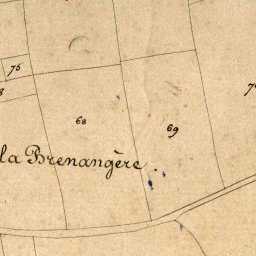 75
68
69
la Brenangère.